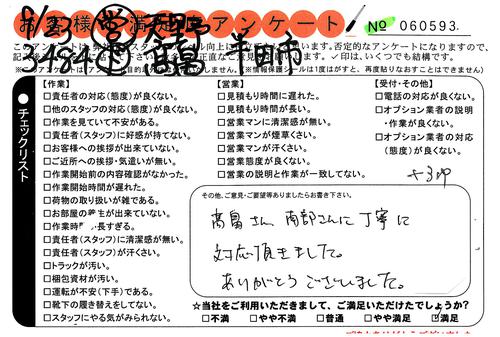 お客様満足度アンケート
No 060593
9/23 ㊂ 天野
3484 高畠 半田市
【作業】
□責任者の対応(態度)が良くない。
□他のスタッフの対応(態度)が良くない。
□作業を見ていて不安がある。
□責任者(スタッフ)に好感が持てない。
□お客様への挨拶が出来ていない。
□ご近所への挨拶・気遣いが無い。
□作業開始前の内容確認がなかった。
□作業開始時間が遅れた。
□荷物の取り扱いが雑である。
□お部屋の養生が出来ていない。
□作業時間が長すぎる。
□責任者(スタッフ)に清潔感が無い。
□責任者(スタッフ)が汗くさい。
□トラックが汚い。
□梱包資材が汚い。
□運転が不安(下手)である。
□靴下の履き替えをしてない。
□スタッフにやる気がみられない。
【営業】
□見積もり時間に遅れた。
□見積もり時間が長い。
□営業マンに清潔感が無い。
□営業マンが煙草くさい。
□営業マンが汗くさい。
□営業態度が良くない。
□営業の説明と作業が一致してない。
【受付・その他】
□電話の対応が良くない。
□オプション業者の説明
・作業が良くない。
□オプション業者の対応
(態度)が良くない。
●チェックリスト
その他、ご意見・ご要望等ありましたらお書き下さい。
高畠さん、南部さんに丁寧に
対応頂きました。
ありがとうございました。
☆当社をご利用いただきまして、ご満足いただけたでしょうか?
□不満 □やや不満 □普通 □やや満足 ☑満足